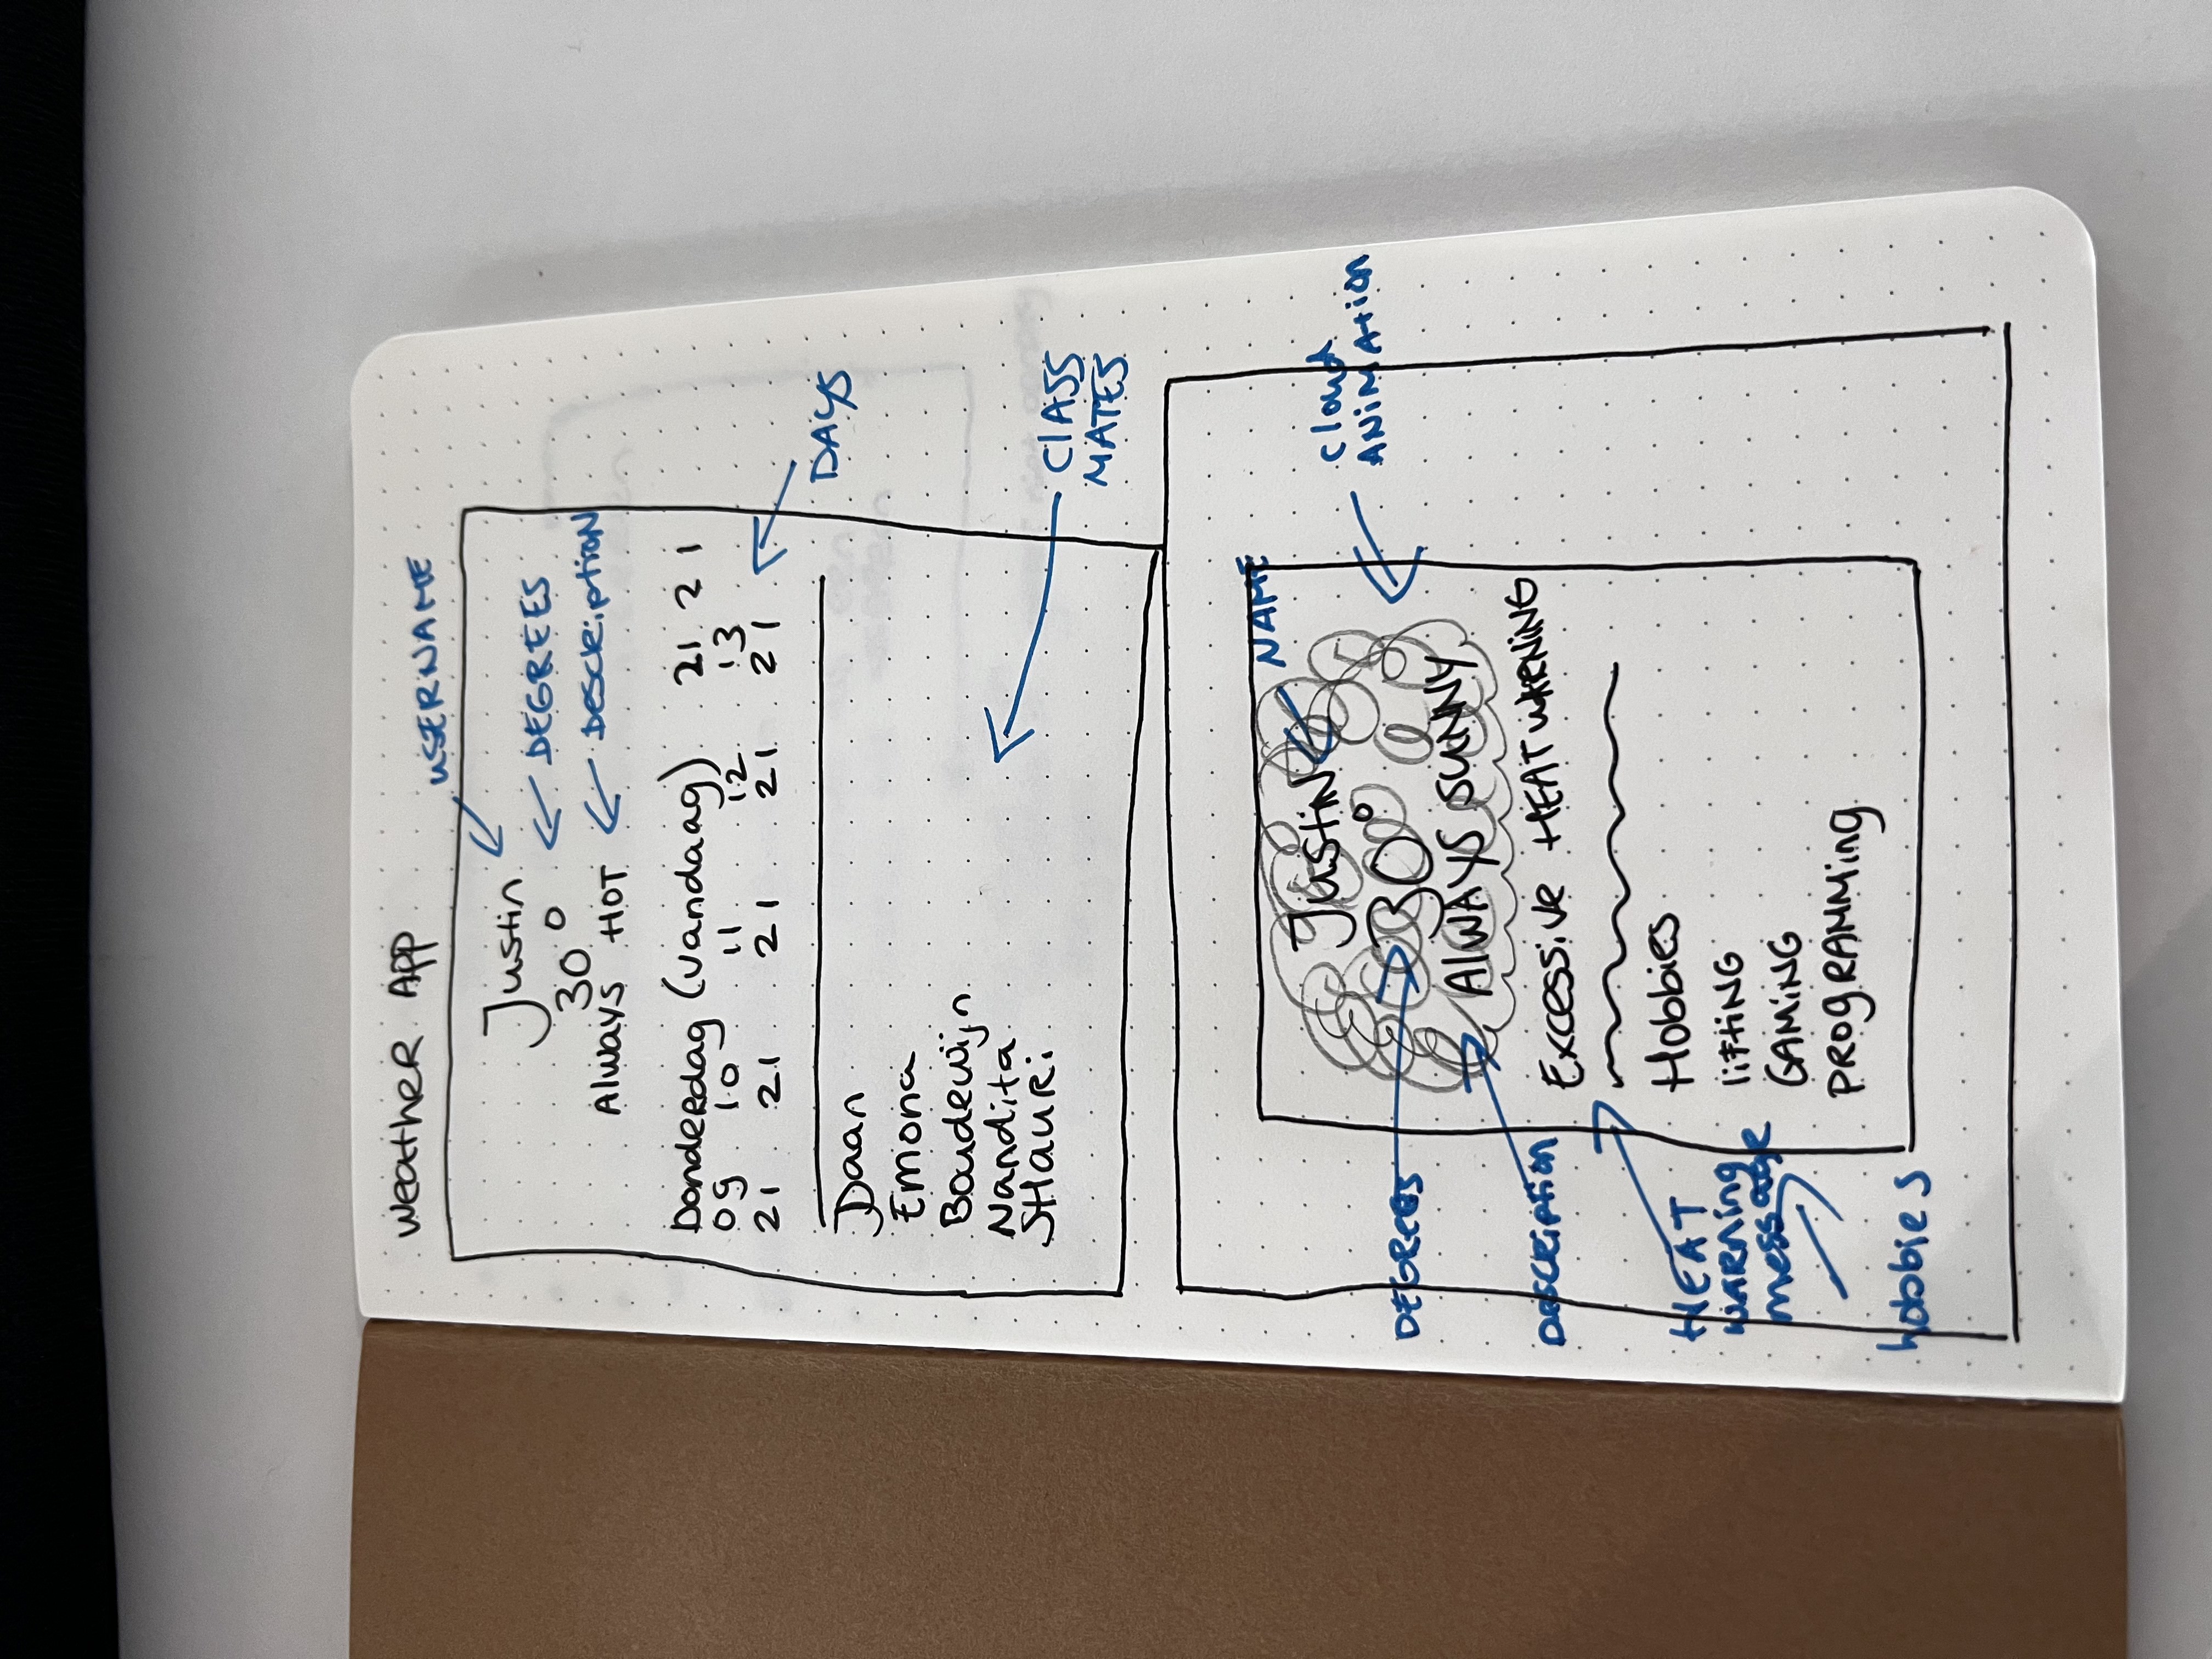 Weather App
USERNAME
Justin
30° DEGREES
Always HOT Description
Donderdag (vandaag) 21 21
09 10 11 12 13
21 21 21 21 21
DAYS
Daan
Emona
Boudewijn
Nandita
SHauri
CLASS
MATES
NAME
Justin
cloud
ANiMAtion
DEGREES 30°
AlWAYS SUNNY
Description
Excessive HEAT WARNiNG
HEAT
WARning
message
Hobbies
liftiNG
GAMiNG
PROgRAMMing
hobbies